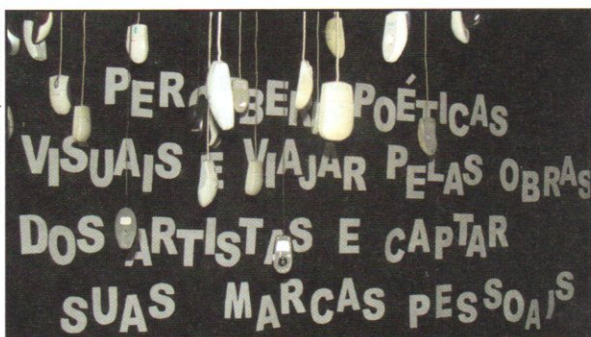 PERCEBER POÉTICAS
VISUAIS E VIAJAR PELAS OBRAS
DOS ARTISTAS E CAPTAR
SUAS MARCAS PESSOAIS